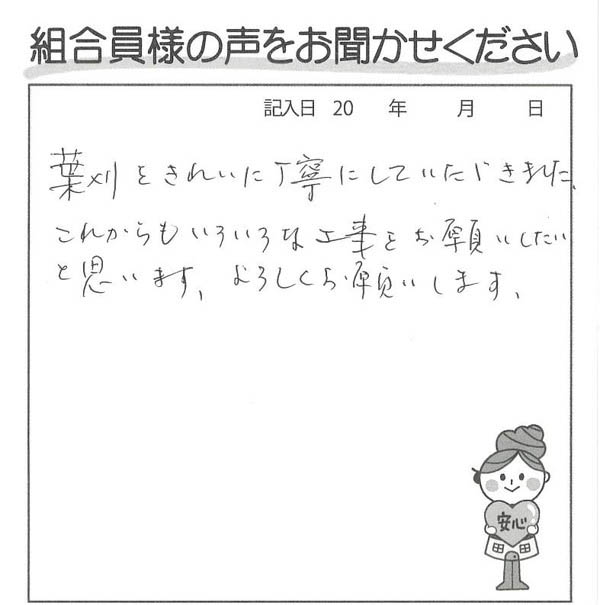 組合員様の声をお聞かせください
記入日 20 年 月 日
葉刈をきれいに丁寧にしていただきました。
これからもいろいろな工事をお願いしたい
と思います。よろしくお願いします。
安心